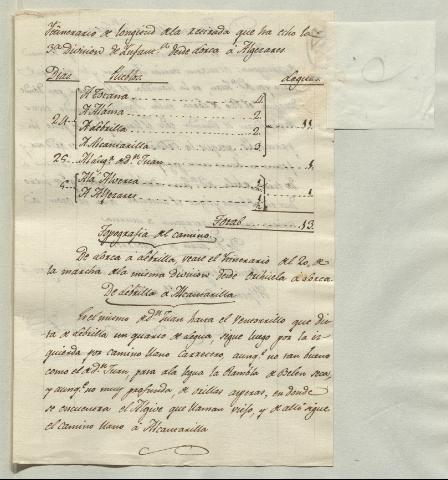 Itinerario de longitud de la retirada que ha echo la
3ª Division de Infantª desde Lorca á Algezares
Dias Pueblos Leguas
A Tocana 4
A Alama 2
24 A Librilla 2 11
A Alcantarilla 3
25 A la izqª de dn Juan 1
A la Alverca ½
5 A Algezares ½ 1
Total 13
Topografia del camino
De Lorca á Librilla, vease el Itinerario del 20, de
la marcha de la misma division desde Orihuela á Lorca
De Librilla á Alcantarilla
Es el mismo de dn Juan hasta el Ventorrillo que dis
ta de Librilla un quarto de legua, sigue luego por la iz
quierda, por camino llano carretero, aunqe no tan bueno
como el de dn Juan, pasa a la legua la Rambla de Belen seca,
y aunqe no muy profunda, de orillas asperas, en donde
se encuentra el Algive que llaman viejo, y de alli sigue
el camino llano á Alcantarilla